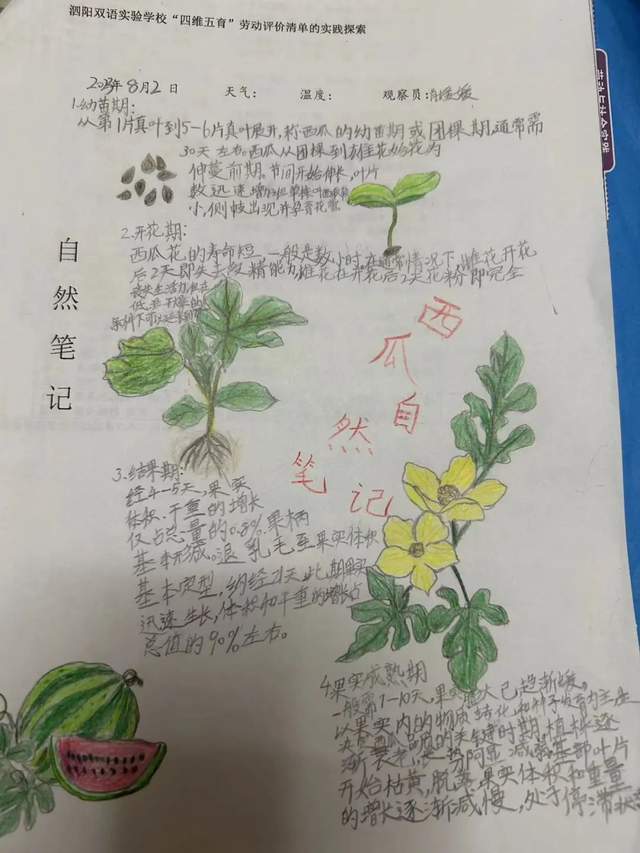 泗阳双语实验学校“四维五育”劳动评价清单的实践探索
2023年8月2日 天气： 温度： 观察员：
1.幼苗期：
从第1片真叶到5-6片真叶展开，称西瓜的幼苗期或团棵期，通常需
30天左右。西瓜从团棵到雄花始花为
伸蔓前期。节间开始伸长，叶片
数迅速增加
小，侧枝出现并孕育花蕾
2.开花期：
西瓜花的寿命短，一般是数小时在通常情况下，雌花开花
后2天即失去受精能力，雄花在开花后2天花粉即完全
丧失生活力
低
条件下可以延长
自然笔记
西瓜自然笔记
3.结果期：
经4-5天，果实
体积、干重的增长
仅占总量的0.8%，果柄
基本形成。退乳毛至果实体积
基本定型，约经21天此期果实
迅速生长，体积和干重的增长占
总值的90%左右。
4果实成熟期
一般需7-10天，果实膨大已趋渐缓。
以果实内的物质转化和种子发育为主，座
时期，植株逐
渐衰老，长势 减弱，基部叶片
开始枯黄，脱落，果实体积和重量
的增长逐渐减慢，处于停滞状